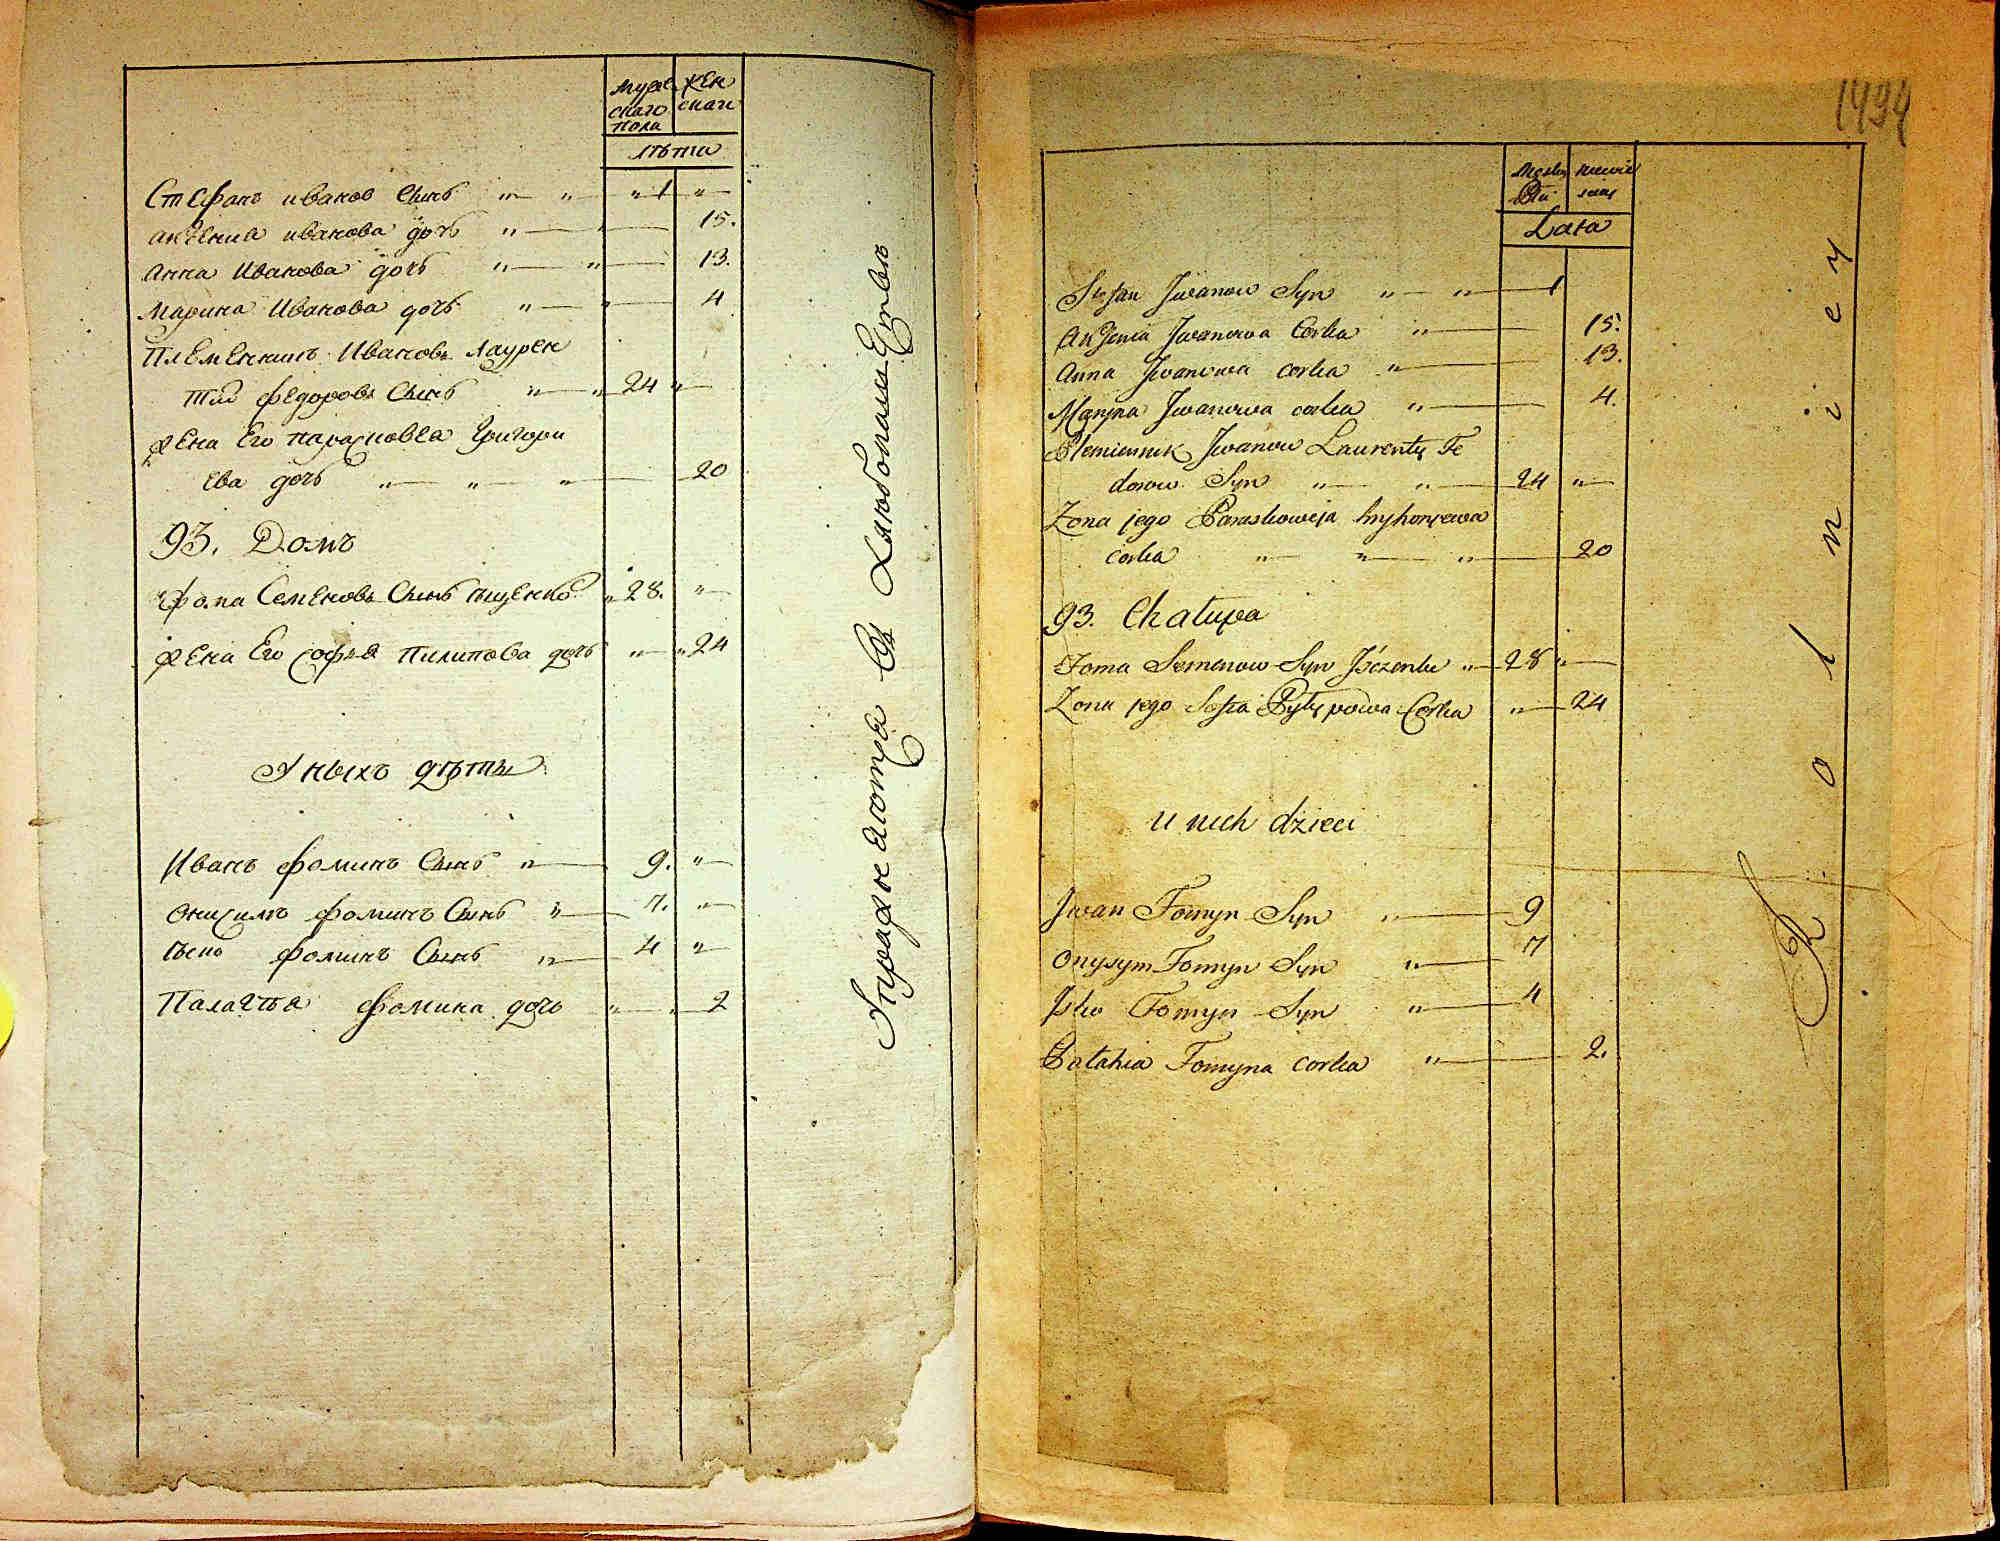 Мужес Жен
скаго скаго
пола
лѣта
Стефанъ иванов Сынъ " " " 1 "
иванова дочъ " 15.
Анна Иванова дочъ " " 13.
Марина Иванова дочъ " " 4
Племенникъ Ивановъ Лаурен
тій федоровъ Сынъ " " 24 "
жена Его парасковеа Григори
ева дочъ " " " 20
93. Домъ
фома Семеновъ Сынъ ѣщенко " 28. "
жена Его софѣа пилипова дочъ " " 24
У ныхъ дѣты
Иванъ фоминъ Сынъ " 9. "
онисимъ фоминъ Сынъ " 7. "
ѣско фоминъ Сынъ " 4 "
Палагѣа фомина дочъ " " 2
1494
Męzkiey niewie
Płci
Lata
Stefan Jwanow Syn " " 1
Jwanowa Corka " 15.
Anna Jwanowa corka " 13.
Maryna Jwanowa corka " 4.
Plemiennik Jwanow Laurenty Fe
dorow Syn " " 24 "
Zona jego Paraskoweja hryhoryewa
corka " " " 20
93. Chałupa
Foma Semenow Syn Jśczenko " 28 "
Zona jego Sofia Pyłypowa Corka " 24
u nich dzieci
Jwan Fomyn Syn " 9
Onysym Fomyn Syn " 7
Jsko Fomyn Syn " 4
Pałahia Fomyna corka " 2.
Rolniey